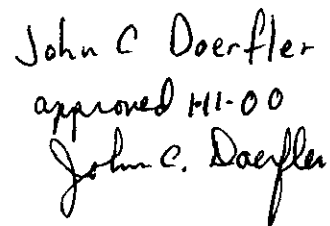 John C Doerfler
approved 1-11-00
John C. Doerfler